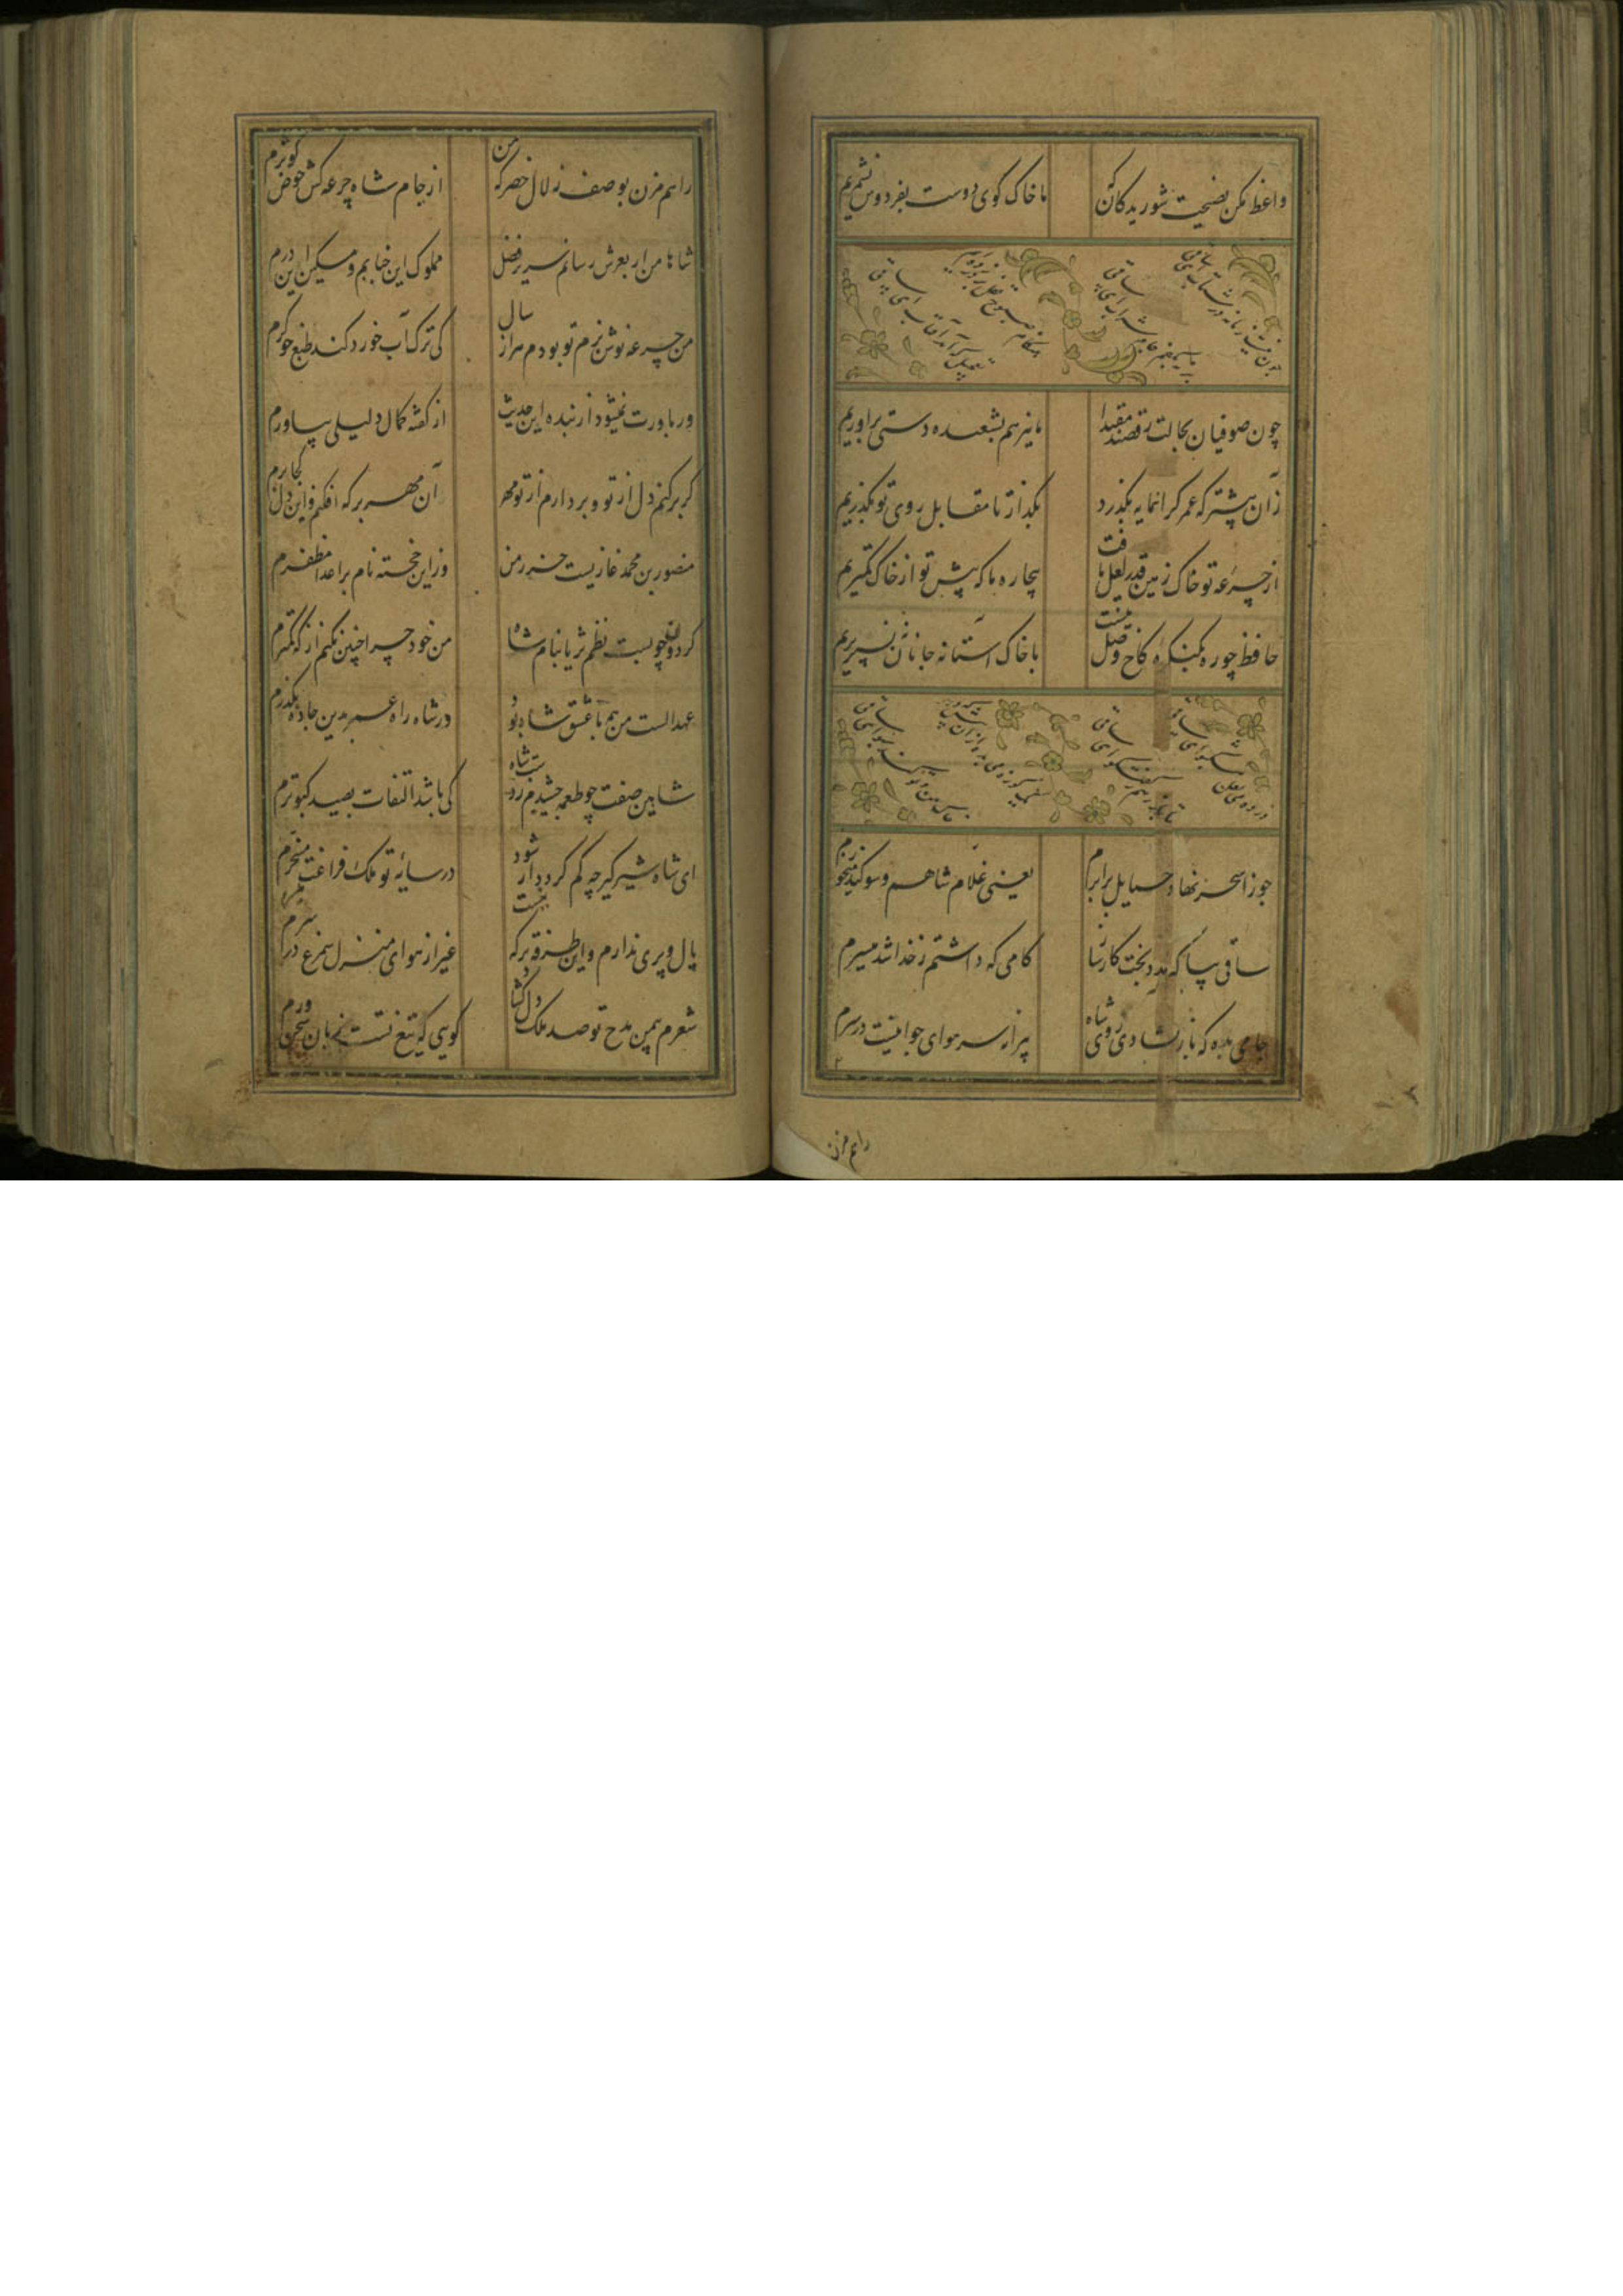 واعظ مکن نصیحت شوریدگان که ما خاک کوی دوست بفردوس ننگریم
چون صوفیان بحالت رقصند مقتدا ما نیز هم بشعبده دستی براوریم
زآن پیشتر که عمر کرانمایه بگذرد بگذار تا مقابل روی تو بگذریم
از جرعه تو خاک زمین قدر لعل یافت بیچاره ما که پیش تو از خاک کمتریم
حافظ چو ره بکنکره کاخ وصل نیست با خاک آستانه جانان بسر بریم
جوزا سحر نهاد حمایل برابرم یعنی غلام شاهم و سوکند میخورم
ساقی بیا که از مدد بخت کارساز کامی که داشتم ز خدا شد میسرم
جامی بده که باز بشادی روی شاه پیرانه سر هوای جوانیست در سرم
راهم مزن
راهم مزن بوصف زلال خضر که من از جام شاه جرعه کش حوض کوثرم
شاها من ار بعرش رسانم سریر فضل مملوک این جنابم و مسکین این درم
من جرعه نوش بزم تو بودم هزار سال کی ترک آب خورد کند طبع خوکرم
ور باورت نمیشود از بنده این حدیث از کفته کمال دلیلی بیاورم
کر برکنم دل از تو و بردارم از تو مهر آن مهر بر که افکنم و این دل کجا برم
منصور بن محمد غازیست حرز من وز این خجسته نام بر اعدا مظفرم
کردون چو بست نظم ثریا بنام شاه من خود چرا چنین نکنم از که کمترم
عهد الست من هم با عشق شاه بود در شاه راه عمر بدین جاده بگذرم
شاهین صفت چو طعمه چشیدم ز دست شاه کی باشد التفات بصید کبوترم
ای شاه شیرکیر چه کم کردد ار شود در سایه تو ملک فراغت میسرم
بال و پری ندارم و این طرفه تر که نیست غیر از هوای منزل سیمرغ در سرم
شعرم بیمن مدح تو صد ملک دل کشاد کویی که تیغ تست زبان سخن ورم